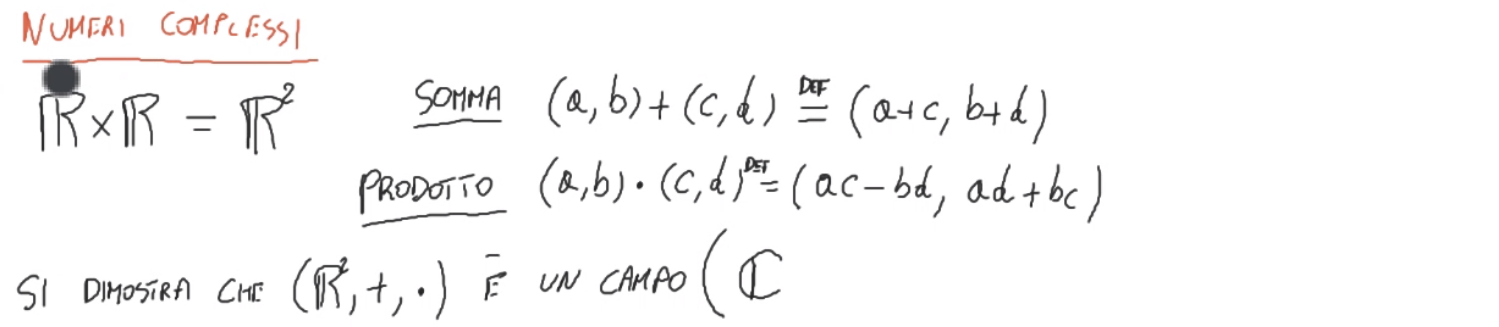 NUMERI COMPLESSI
ℝ×ℝ = ℝ² SOMMA (a,b)+(c,d) ≝ (a+c, b+d)
PRODOTTO (a,b)·(c,d) ≝ (ac-bd, ad+bc)
SI DIMOSTRA CHE (ℝ²,+,·) È UN CAMPO (ℂ